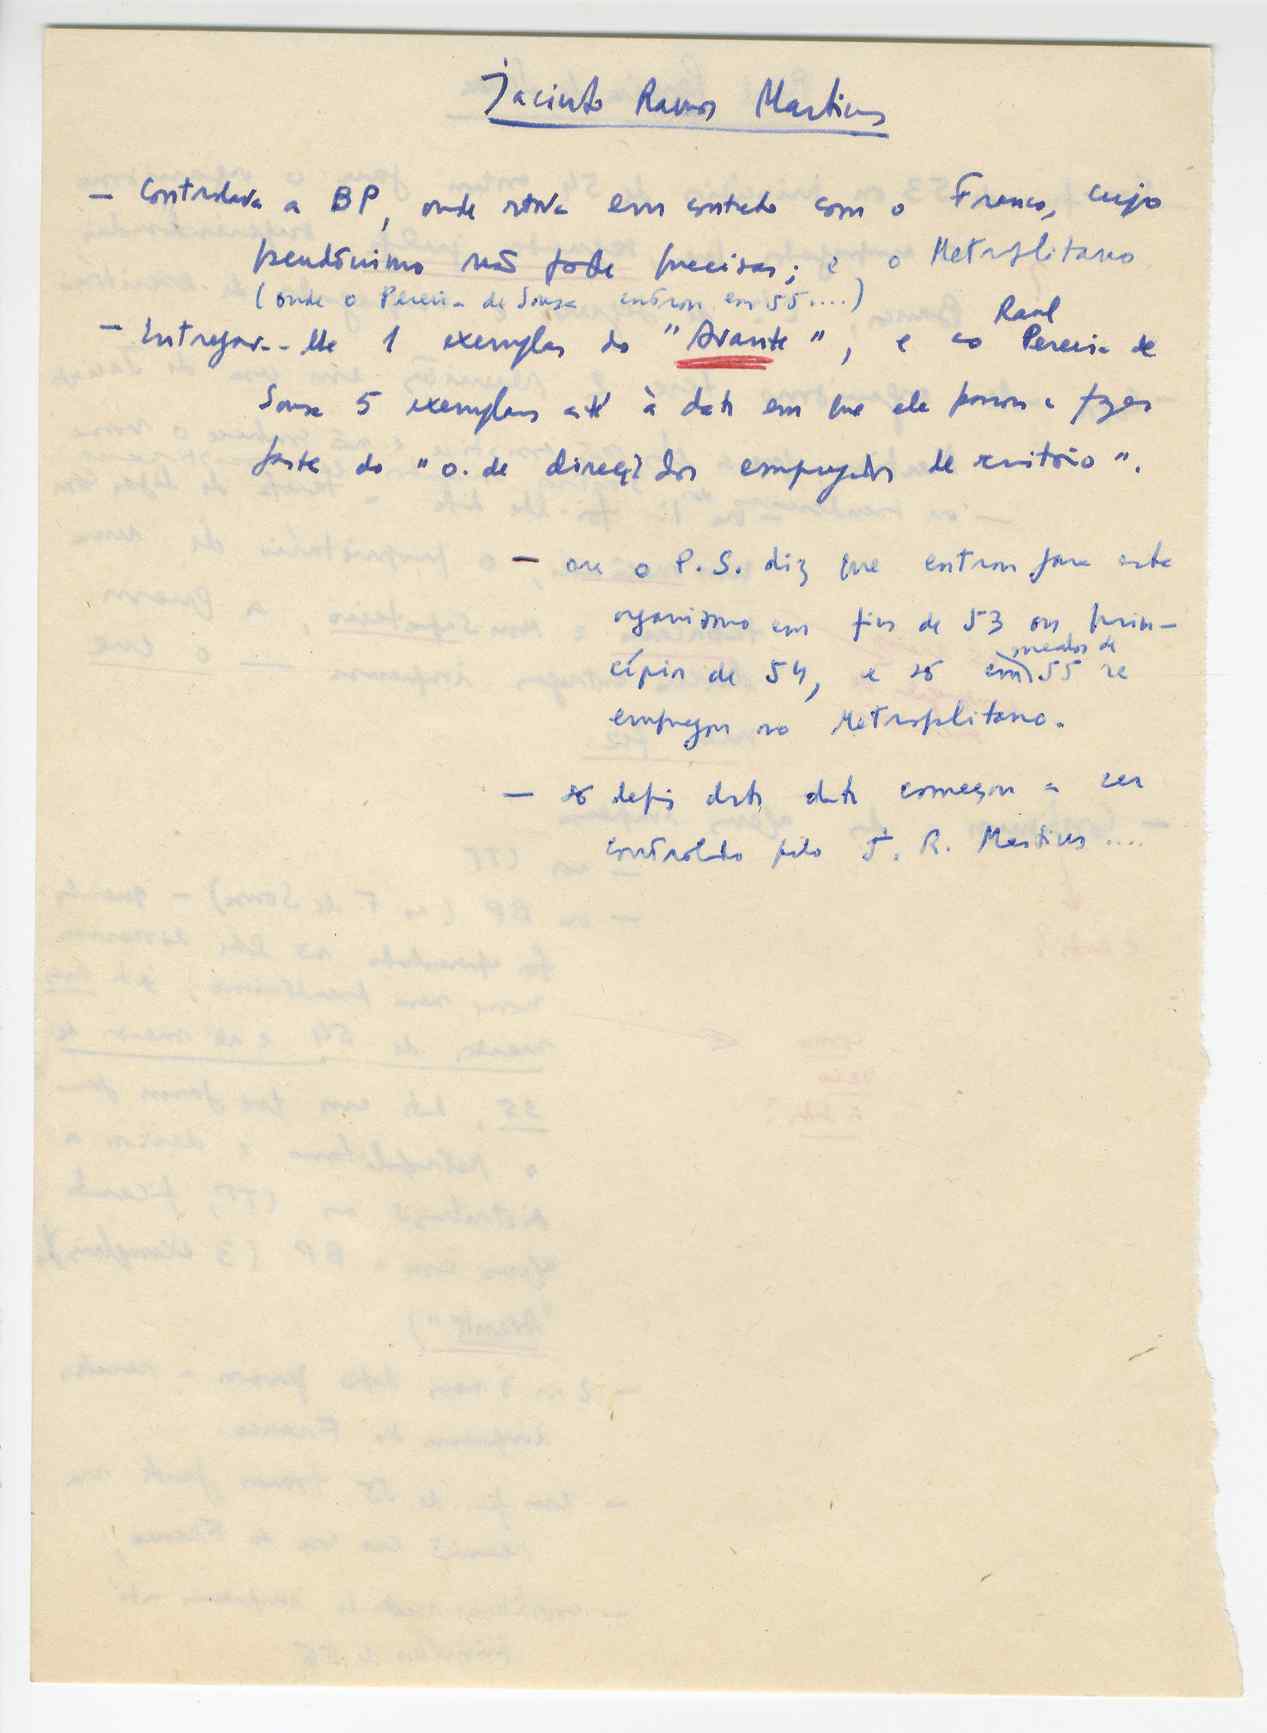 Jacinto Ramos Martins
— Controlava a BP, onde estava em contacto com o Franco, cujo
pseudónimo não pode precisar; e o Metropolitano
(onde o Pereira de Sousa entrou em 55....)
— Entregava-lhe 1 exemplar do "Avante", e ao Raul Pereira de
Sousa 5 exemplares até à data em que ele passou a fazer
parte do "o. de direcção dos empregados de escritório".
— ora o P. S. diz que entrou para este
organismo em fins de 53 ou prin-
cípios de 54, e só em meados de 55 se
empregou no Metropolitano.
— só depois desta data começou a ser
controlado pelo J. R. Martins ....